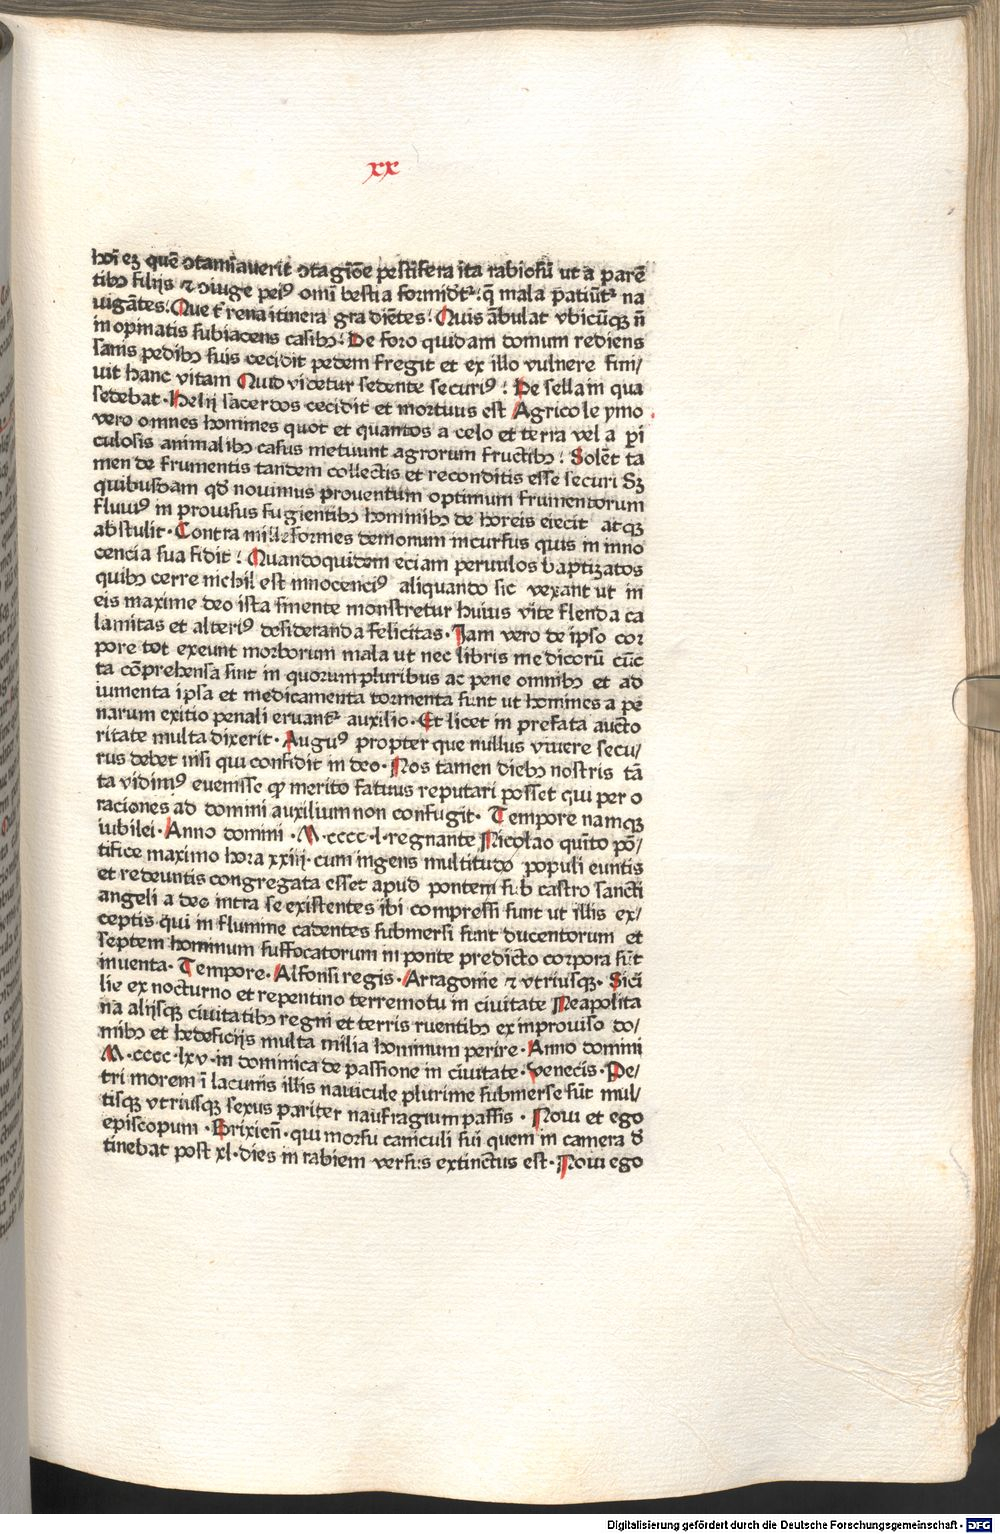 xx
hoīeꝫ quē ↄtamīaverit ↄtagiōe pestifera ita rabiosū ut a parē
tibꝰ filijs ⁊ ↄiuge peiꝰ omī bestia formidꝉ: q̄ mala patiūt̉ na
uigātes: Que t̄rena itinera gradiētes: Quis ābulat vbicūqꝫ ñ
inopinatis subiacens casibꝰ: De foro quidam domum rediens
sanis pedibꝰ suis cecidit pedem fregit et ex illo vulnere fini/
uit hanc vitam Quid videtur sedente securiꝰ: De sella in qua
sedebat · Helij sacerdos cecidit et mortuus est Agricole ymo
vero omnes homines quot et quantos a celo et terra vel a ꝑi
culosis animalibꝰ casus metuunt agrorum fructibꝰ: Solēt ta
men de frumentis tandem collectis et reconditis esse securi Sꝫ
quibusdam qd̄ novimus proventum optimum frumentorum
fluuiꝰ in prouisus fugientibꝰ hominibꝰ de horeis eiecit atqꝫ
abstulit · Contra milleformes demonum incursus quis in inno
cencia sua fidit: Quandoquidem eciam peruulos baptizatos
quibꝰ certe nichil est innocenciꝰ aliquando sic vexant ut in
eis maxime deo ista sinente monstretur huius vite flenda ca
lamitas et alteriꝰ desideranda felicitas · Jam vero de ipso cor
pore tot exeunt morborum mala ut nec libris medicorū cūc
ta cōprehensa sint in quorum pluribus ac pene omnibꝰ et ad
iumenta ipsa et medicamenta tormenta sunt ut homines a pe
narum exitio penali eruant̉ auxilio · Et licet in prefata aucto
ritate multa dixerit · Auguꝰ propter que nullus viuere secu/
rus debet nisi qui confidit in deo · Nos tamen diebꝰ nostris tā
ta vidimꝰ evenisse ꝙ merito fatuus reputari posset qui per o
raciones ad domini auxilium non confugit · Tempore namqꝫ
iubilei · Anno domini · M · cccc · l · regnante Nicolao quīto pō/
tifice maximo hora xxiij · cum ingens multitudo populi euntis
et redeuntis congregata esset apud pontem sub castro sancti
angeli adeo intra se existentes ibi compressi sunt ut illis ex/
ceptis qui in flumine cadentes submersi sunt ducentorum et
septem hominum suffocatorum in ponte predicto corpora sūt
inuenta · Tempore · Alfonsi regis · Arragonie ⁊ vtriusqꝫ · Sici
lie ex nocturno et repentino terremotu in ciuitate Neapolita
na alijsqꝫ ciuitatibꝰ regni et terris ruentibꝰ ex improuiso do/
mibꝰ et hedeficijs multa milia hominum perire · Anno domini
M · cccc · lxv · in dominica de passione in ciuitate · Venecis · Pe/
tri morem ī lacunis illis nauicule plurime submerse sūt mul/
tisqꝫ vtriusqꝫ sexus pariter naufragium passis · Noui et ego
episcopum · Brixień · qui morsu caniculi sui quem in camera d̄
tinebat post xl · dies in rabiem versus extinctus est · Noui ego
Digitalisierung gefördert durch die Deutsche Forschungsgemeinschaft - DFG